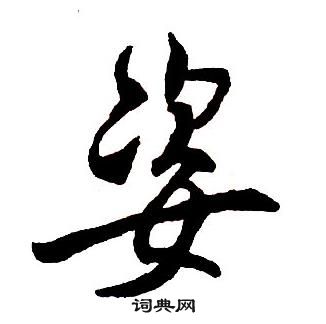 姿
词典网